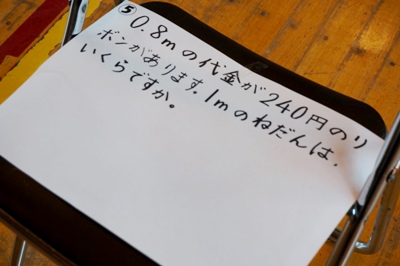 ⑤0.8mの代金が240円のリ
ボンがあります。1mのねだんは、
いくらですか。